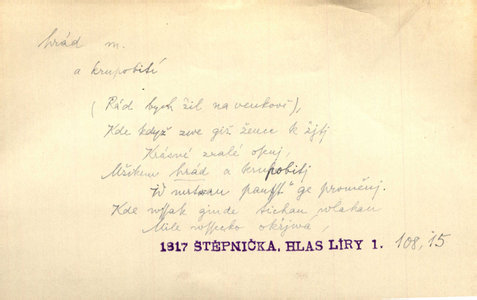 hrád m.
a krupobití
(Rád bych žil na venkově),
Kde když zwe giž žence k žjtj
Krásné zralé osenj,
Mžikem hrád a krupobitj
W mrtwau paušť ge proměnj.
Kde wssak ginde tichau wlahau
Mile wssecko okřjwá,
1817 ŠTĚPNIČKA, HLAS LÍRY 1. 108,15